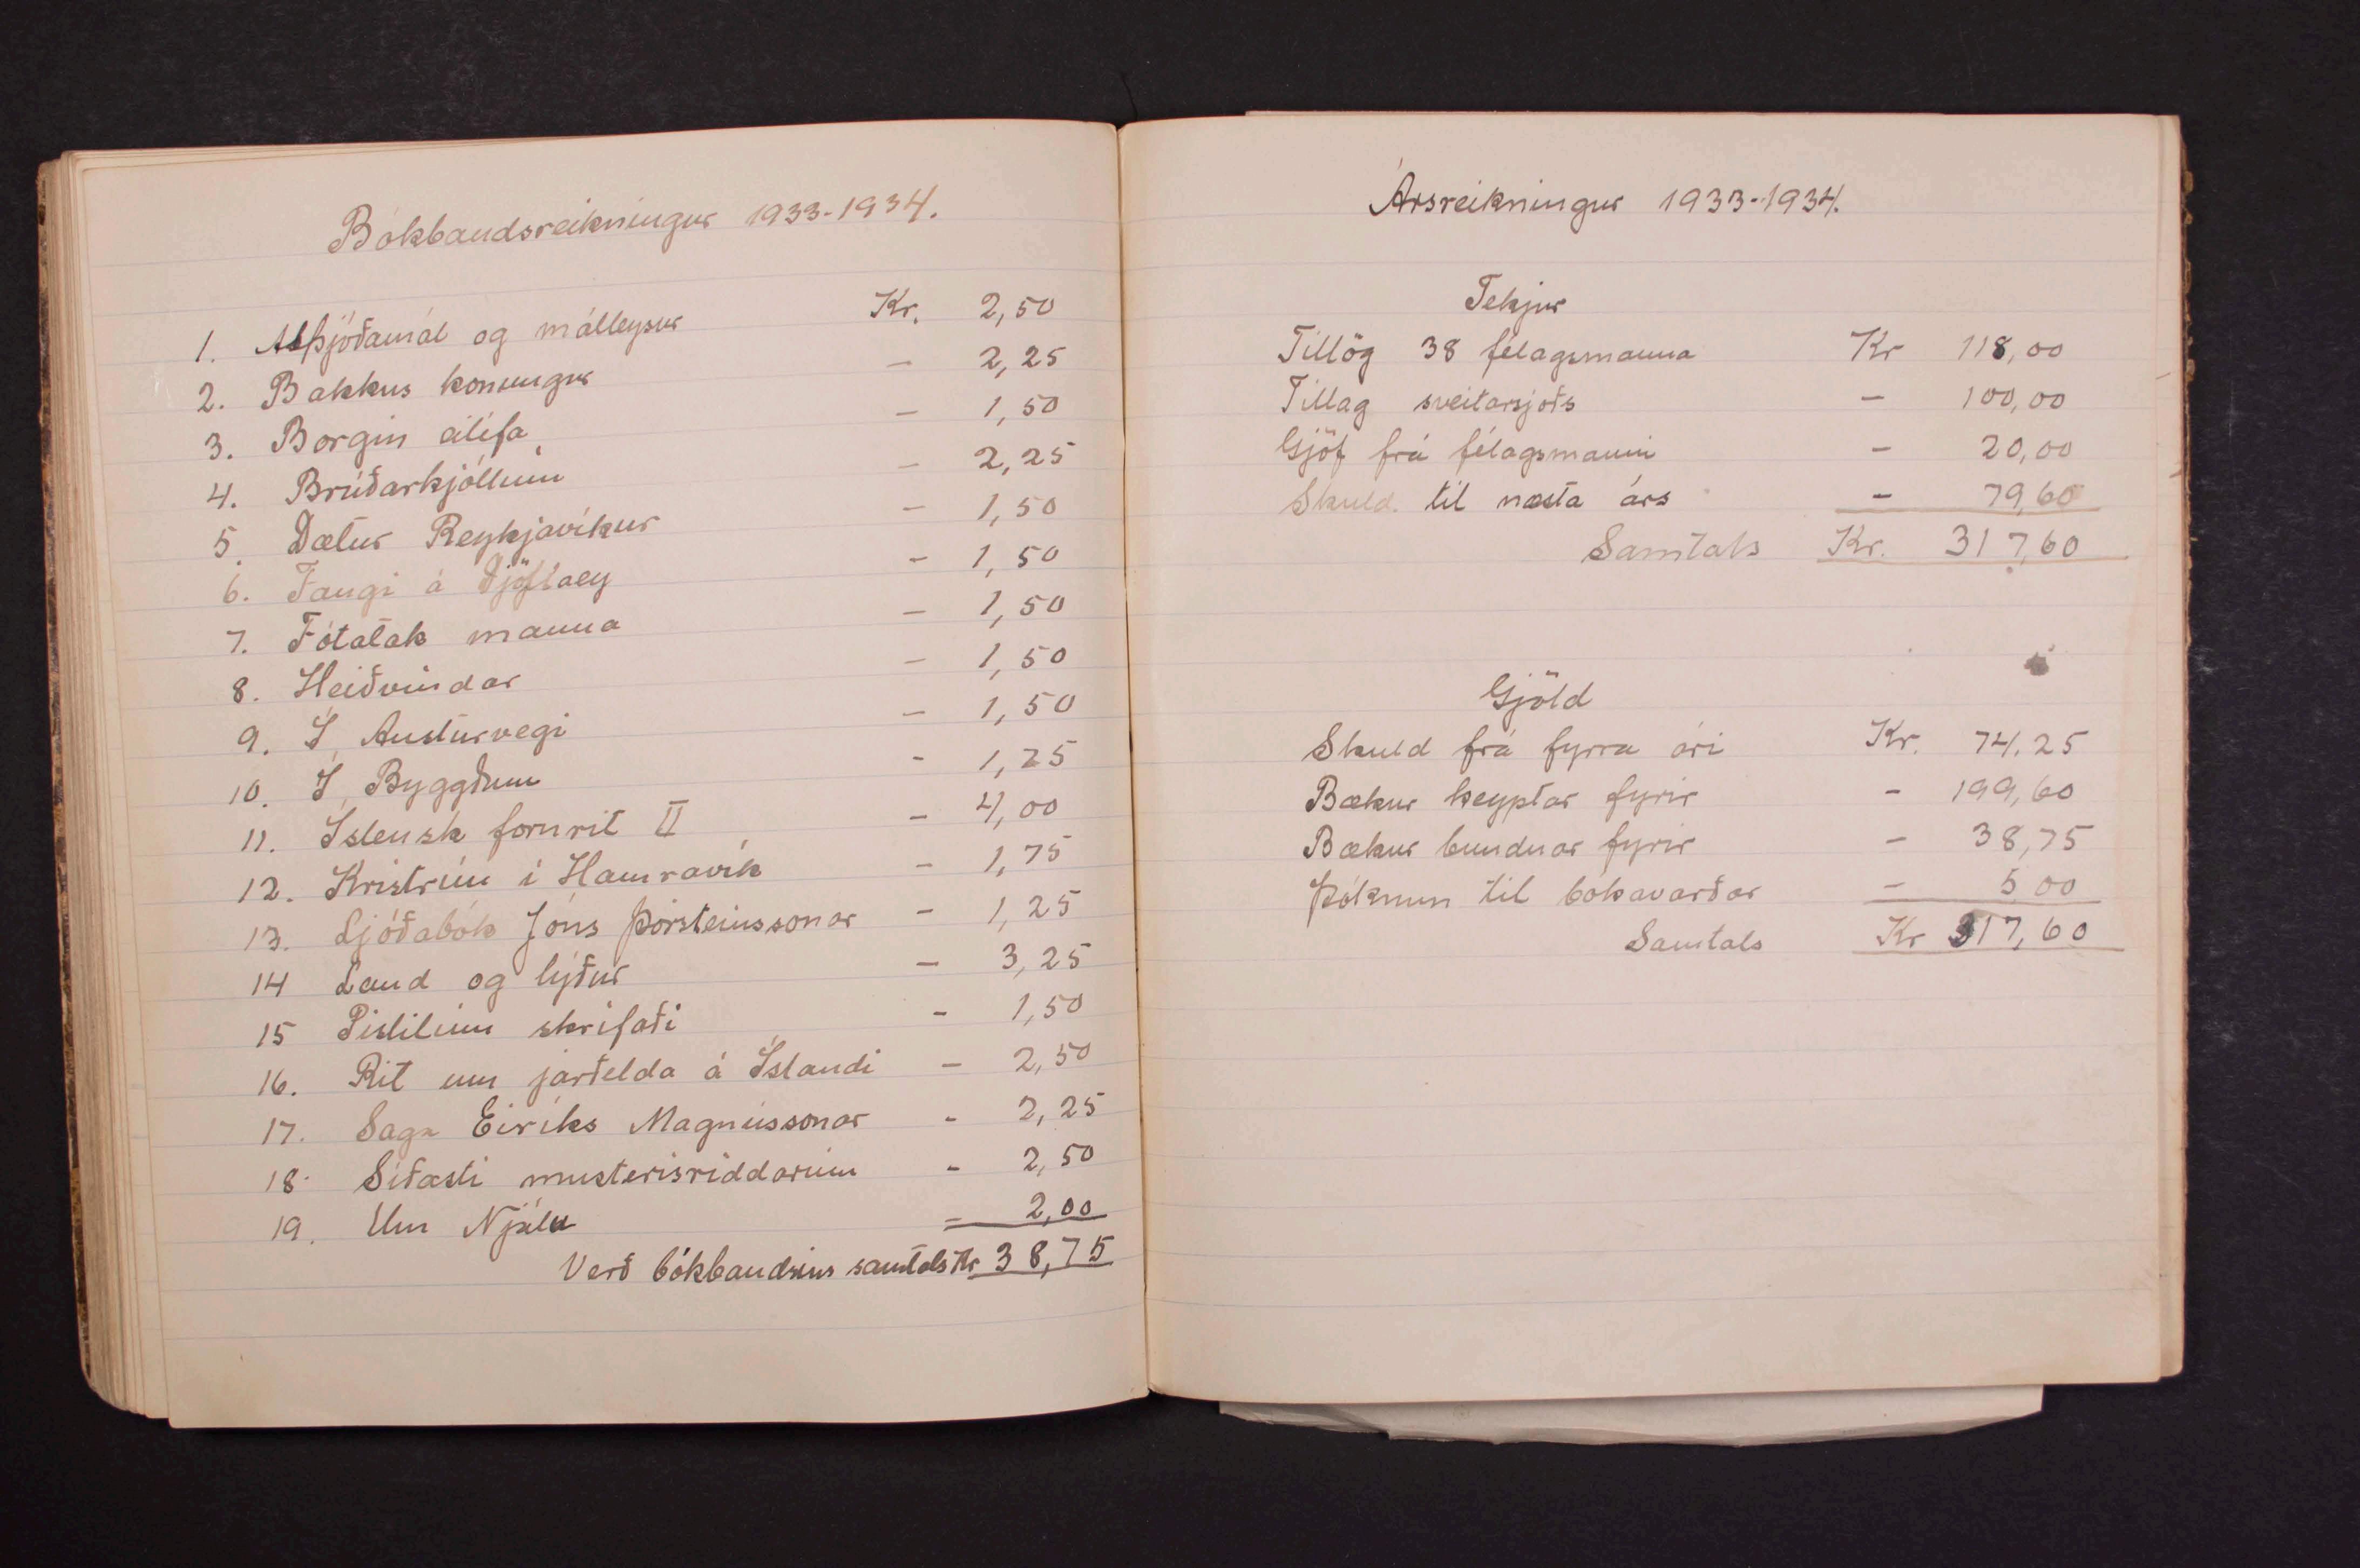 Bókbandsreikningur 1933-1934.
1. Alþjóðamál og málleysur Kr. 2,50
2. Bakkus konungur — 2,25
3. Borgin eilífa — 1,50
4. Brúðarkjóllinn — 2,25
5. Dætur Reykjavíkur — 1,50
6. Fangi á Djöflaey — 1,50
7. Fótatak manna — 1,50
8. Heiðvindar — 1,50
9. Í Austurvegi — 1,50
10. Í Byggðum - 1,25
11. Íslensk fornrit II — 4,00
12. Kristrún í Hamravík — 1,75
13. Ljóðabók Jóns Þorsteinssonar — 1,25
14 Land og lýður — 3,25
15 Pistilinn skrifaði - 1,50
16. Rit um jarðelda á Íslandi — 2,50
17. Saga Eiríks Magnússonar - 2,25
18. Síðasti musterisriddarinn - 2,50
19. Um Njálu - 2,00
Verð bókbandsins samtals Kr 38,75
Ársreikningur 1933-1934.
Tekjur
Tillög 38 félagsmanna Kr 118,00
Tillag sveitarsjóðs — 100,00
Gjöf frá félagsmanni — 20,00
Skuld til næsta árs — 79,60
Samtals Kr. 317,60
Gjöld
Skuld frá fyrra ári Kr. 74.25
Bækur keyptar fyrir - 199,60
Bækur bundnar fyrir — 38,75
Þóknun til bókavarðar — 5 00
Samtals Kr 317,60